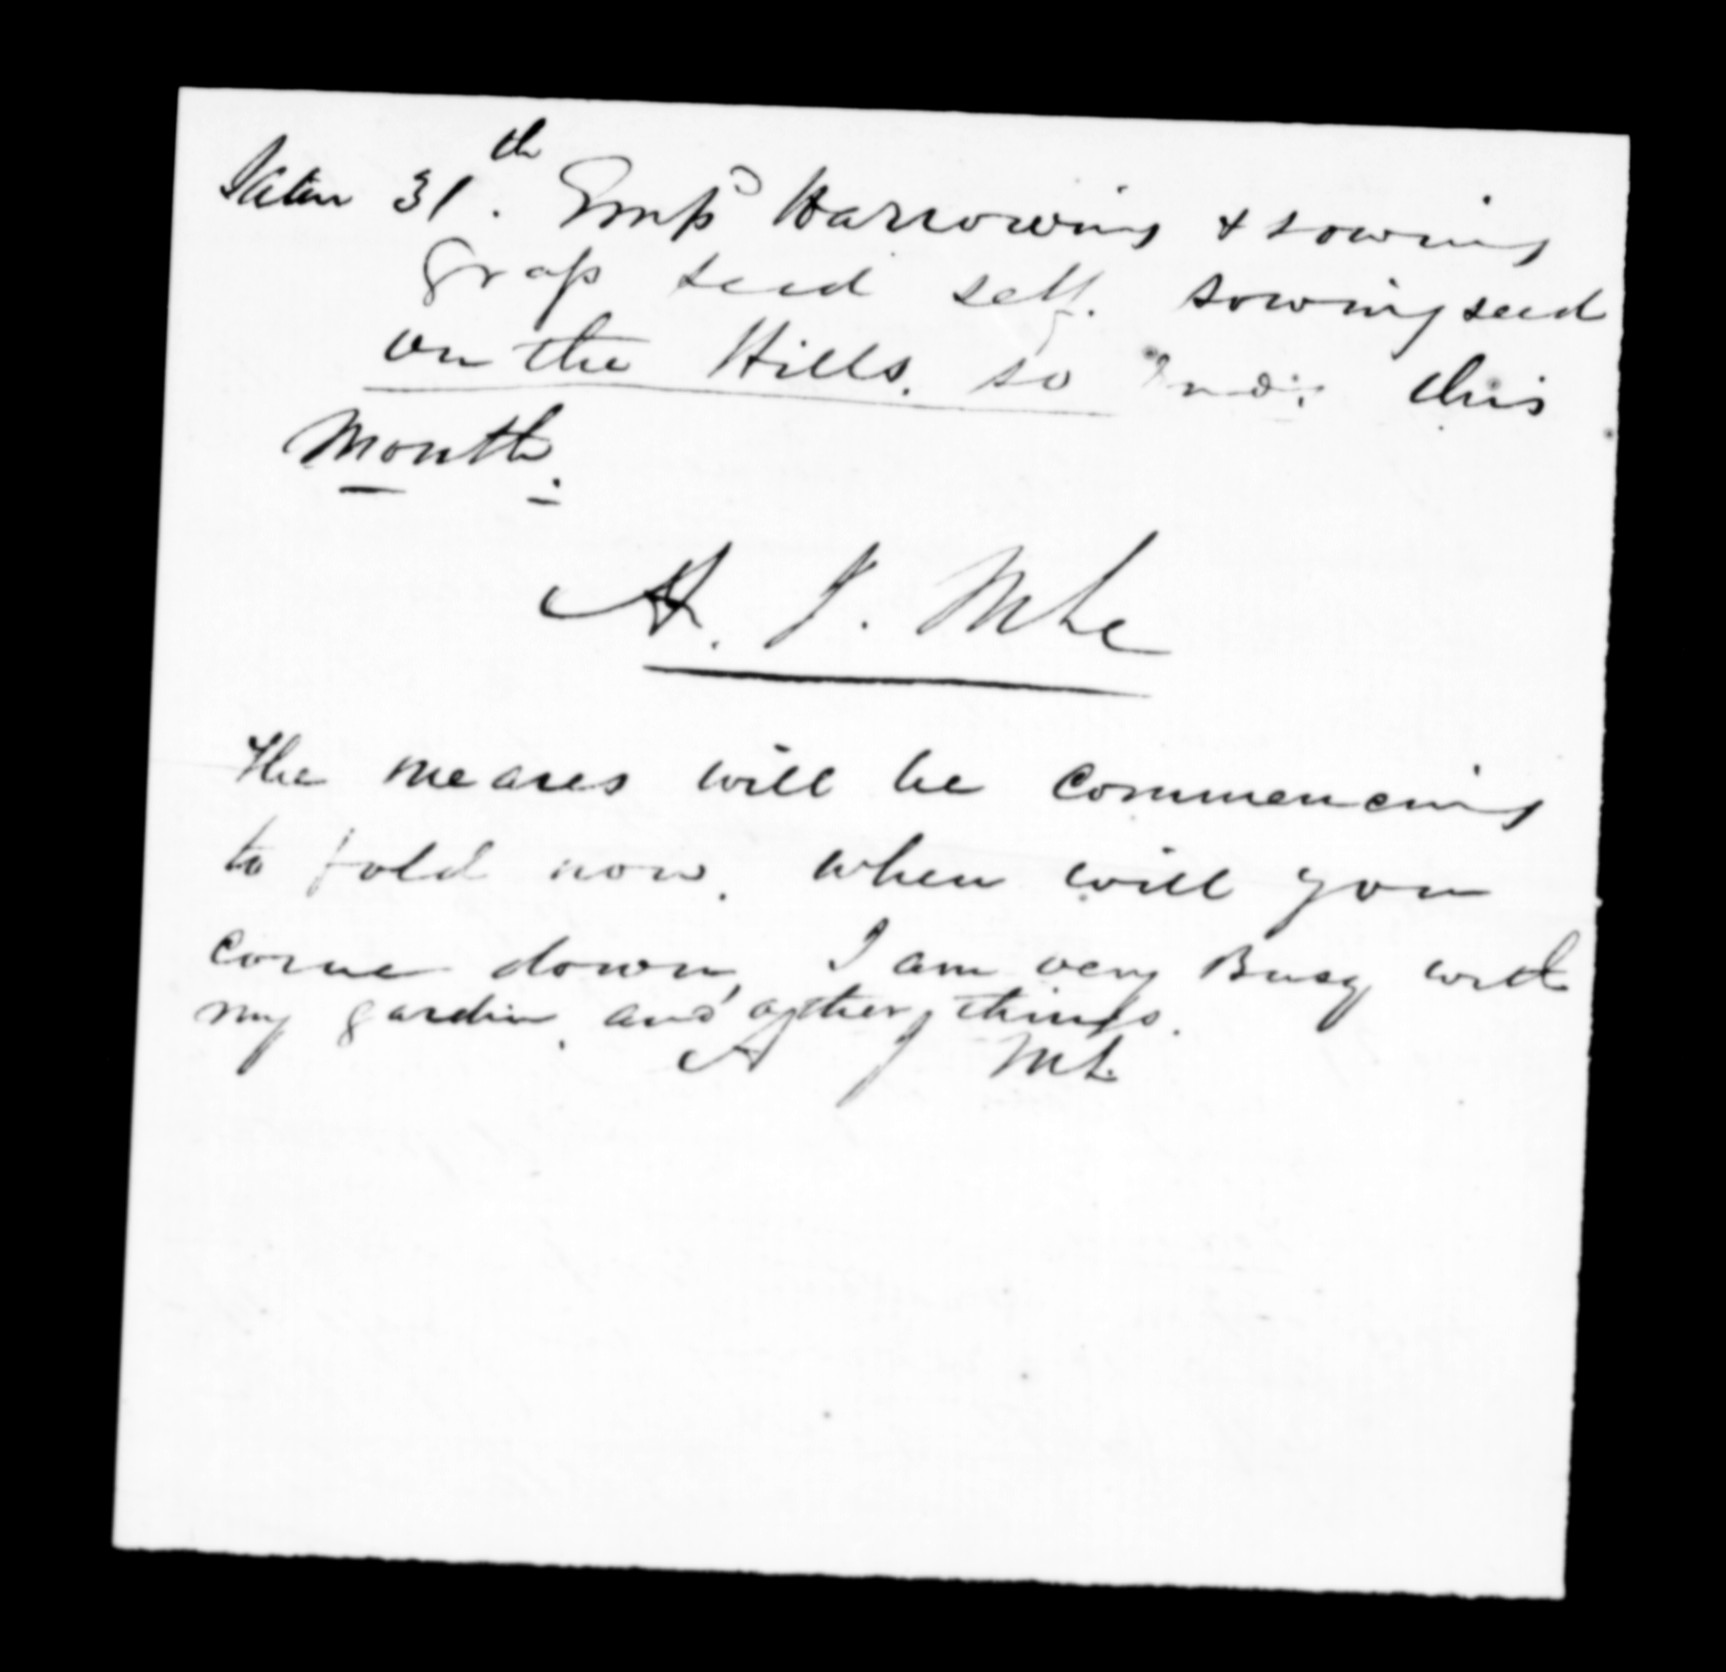 Satur 31th. Empd Harrowing & sowing
grass seed self. sowing seed
on the Hills. so Ends this
Month.
A. J. McL
The meares will be commencing
to fold now. when will you
come down, I am very Busy with
my garden. and other things.
A J McL